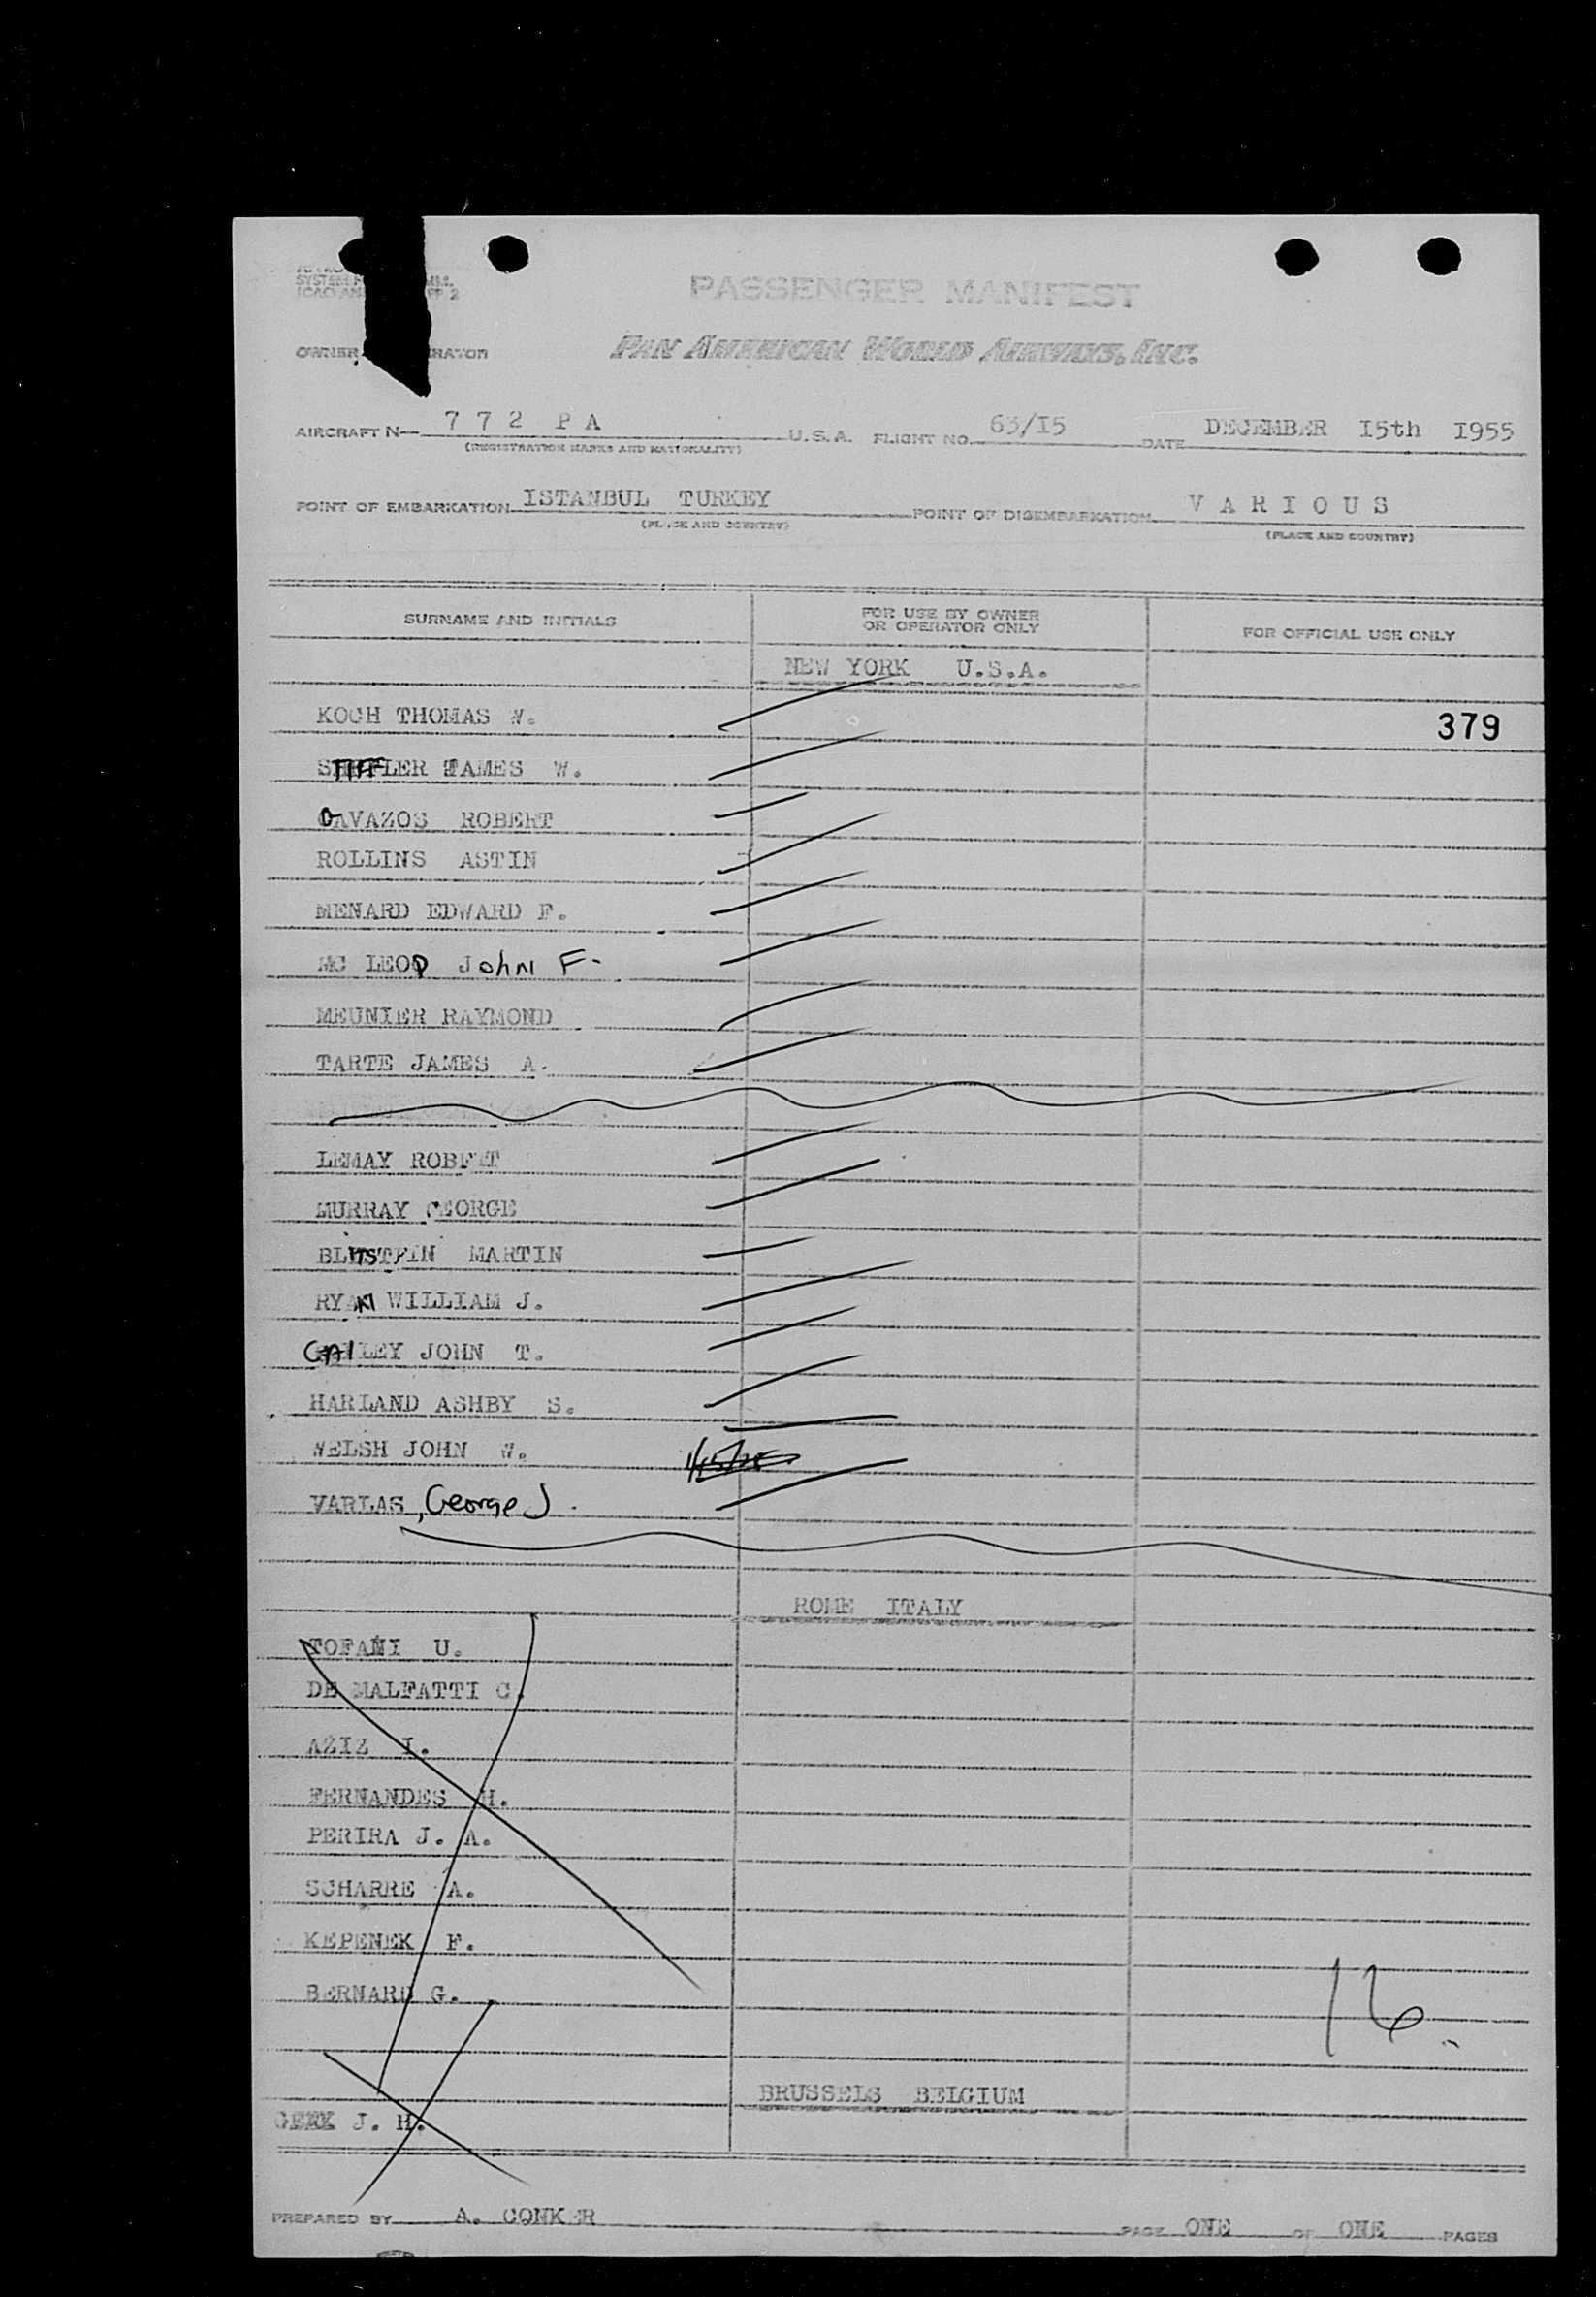 SYSTEM
ICAO AN
PASSENGER MANIFEST
OWNER
PAN AMERICAN WORLD AIRWAYS, INC.
AIRCRAFT N— 7 7 2 P A U.S.A. FLIGHT NO. 63/I5 DATE DECEMBER I5th I955
(REGISTRATION MARKS AND NATIONALITY)
POINT OF EMBARKATION ISTANBUL TURKEY POINT OF DISEMBARKATION V A R I O U S
(PLACE AND COUNTRY) (PLACE AND COUNTRY)
SURNAME AND INITIALS FOR USE BY OWNER OR OPERATOR ONLY FOR OFFICIAL USE ONLY
NEW YORK U.S.A.
KOCH THOMAS W.
379
JAMES W.
CAVAZOS ROBERT
ROLLINS ASTIN
MENARD EDWARD F.
MC LEOD JohN F.
MEUNIER RAYMOND
TARTE JAMES A.
LEMAY ROBERT
MURRAY GEORGE
MARTIN
RYAN WILLIAM J.
CAILEY JOHN T.
HARLAND ASHBY S.
WELSH JOHN W.
VARLAS, George J.
ROME ITALY
TOFANI U.
DE MALFATTI C.
AZIZ I.
FERNANDES H.
PERIRA J. A.
SCHARRE A.
KEPENEK F.
BERNARD G.
16.
BRUSSELS BELGIUM
J. H.
PREPARED BY A. CONKER PAGE ONE OF ONE PAGES